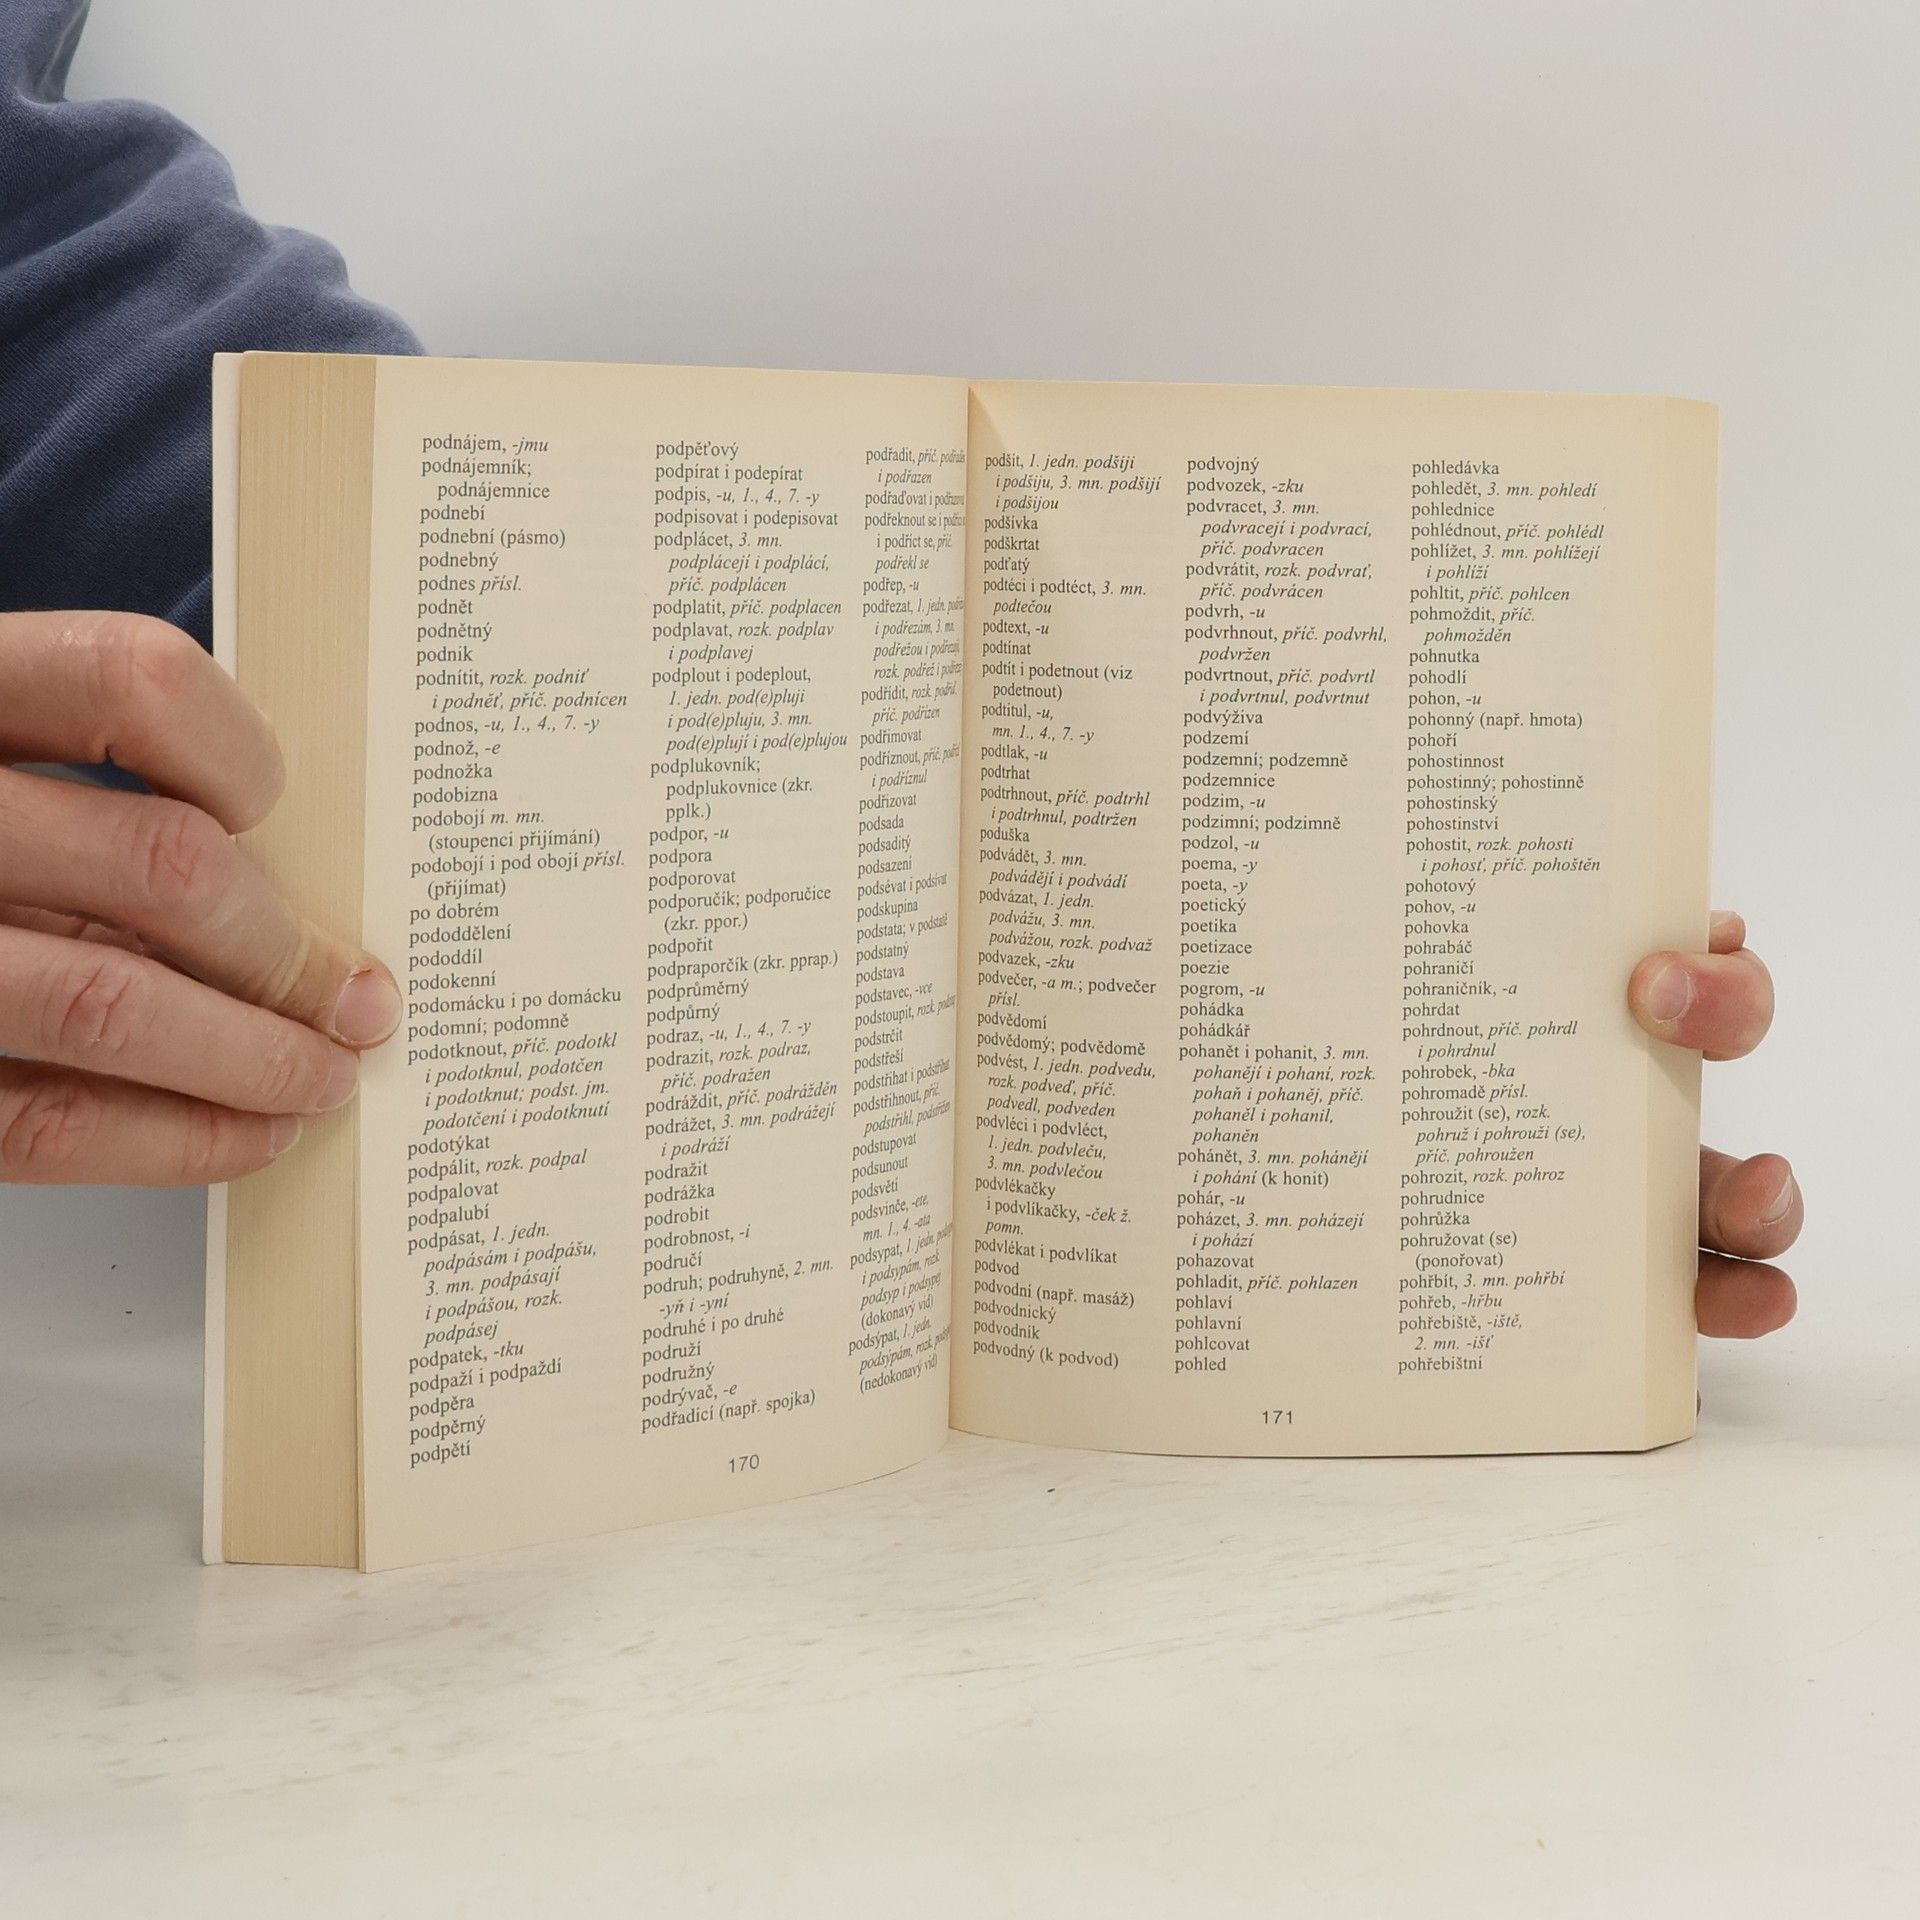 podnájem, -jmu
podnájemník;
podnájemnice
podnebí
podnební (pásmo)
podnebný
podnes přísl.
podnět
podnětný
podnik
podnítit, rozk. podniť
i podněť, příč. podnícen
podnos, -u, 1., 4., 7. -y
podnož, -e
podnožka
podobizna
podobojí m. mn.
(stoupenci přijímání)
podobojí i pod obojí přísl.
(přijímat)
po dobrém
pododdělení
pododdíl
podokenní
podomácku i po domácku
podomní; podomně
podotknout, příč. podotkl
i podotknul, podotčen
i podotknut; podst. jm.
podotčení i podotknutí
podotýkat
podpálit, rozk. podpal
podpalovat
podpalubí
podpásat, 1. jedn.
podpásám i podpášu,
3. mn. podpásají
i podpášou, rozk.
podpásej
podpatek, -tku
podpaží i podpaždí
podpěra
podpěrný
podpětí
podpěťový
podpírat i podepírat
podpis, -u, 1., 4., 7. -y
podpisovat i podepisovat
podplácet, 3. mn.
podplácejí i podplácí,
příč. podplácen
podplatit, příč. podplacen
podplavat, rozk. podplav
i podplavej
podplout i podeplout,
1. jedn. pod(e)pluji
i pod(e)pluju, 3. mn.
pod(e)plují i pod(e)plujou
podplukovník;
podplukovnice (zkr.
pplk.)
podpor, -u
podpora
podporovat
podporučík; podporučice
(zkr. ppor.)
podpořit
podpraporčík (zkr. pprap.)
podprůměrný
podpůrný
podraz, -u, 1., 4., 7. -y
podrazit, rozk. podraz,
příč. podražen
podráždit, příč. podrážděn
podrážet, 3. mn. podrážejí
i podráží
podražit
podrážka
podrobit
podrobnost, -i
područí
podruh; podruhyně, 2. mn.
-yň i -yní
podruhé i po druhé
podruží
podružný
podrývač, -e
podřadicí (např. spojka)
podřadit, příč.
i podřazen
podřaďovat i
podřeknout se i
i podříct se, příč.
podřekl se
podřep, -u
podřezat, 1. jedn.
i podřezám, 3. mn.
podřežou i podřezají,
rozk. podřež i
podřídit, rozk. podřiď,
příč. podřízen
podřimovat
podříznout, příč.
i podříznul
podřizovat
podsada
podsaditý
podsazení
podsévat i podsívat
podskupina
podstata; v podstatě
podstatný
podstava
podstavec, -vce
podstoupit, rozk.
podstrčit
podstřeší
podstříhat i podstřihat
podstřihnout, příč.
podstřihl, podstřižen
podstupovat
podsunout
podsvětí
podsvinče, -ete,
mn. 1., 4. -ata
podsypat, 1. jedn.
i podsypám, rozk.
podsyp i podsypej
(dokonavý vid)
podsýpat, 1. jedn.
podsýpám, rozk.
(nedokonavý vid)
170
podšít, 1. jedn. podšiji
i podšiju, 3. mn. podšijí
i podšijou
podšívka
podškrtat
podťatý
podtéci i podtéct, 3. mn.
podtečou
podtext, -u
podtínat
podtít i podetnout (viz
podetnout)
podtitul, -u,
mn. 1., 4., 7. -y
podtlak, -u
podtrhat
podtrhnout, příč. podtrhl
i podtrhnul, podtržen
poduška
podvádět, 3. mn.
podvádějí i podvádí
podvázat, 1. jedn.
podvážu, 3. mn.
podvážou, rozk. podvaž
podvazek, -zku
podvečer, -a m.; podvečer
přísl.
podvědomí
podvědomý; podvědomě
podvést, 1. jedn. podvedu,
rozk. podveď, příč.
podvedl, podveden
podvléci i podvléct,
1. jedn. podvleču,
3. mn. podvlečou
podvlékačky
i podvlíkačky, -ček ž.
pomn.
podvlékat i podvlíkat
podvod
podvodní (např. masáž)
podvodnický
podvodník
podvodný (k podvod)
podvojný
podvozek, -zku
podvracet, 3. mn.
podvracejí i podvrací,
příč. podvracen
podvrátit, rozk. podvrať,
příč. podvrácen
podvrh, -u
podvrhnout, příč. podvrhl,
podvržen
podvrtnout, příč. podvrtl
i podvrtnul, podvrtnut
podvýživa
podzemí
podzemní; podzemně
podzemnice
podzim, -u
podzimní; podzimně
podzol, -u
poema, -y
poeta, -y
poetický
poetika
poetizace
poezie
pogrom, -u
pohádka
pohádkář
pohanět i pohanit, 3. mn.
pohanějí i pohaní, rozk.
pohaň i pohaněj, příč.
pohaněl i pohanil,
pohaněn
pohánět, 3. mn. pohánějí
i pohání (k honit)
pohár, -u
poházet, 3. mn. poházejí
i pohází
pohazovat
pohladit, příč. pohlazen
pohlaví
pohlavní
pohlcovat
pohled
pohledávka
pohledět, 3. mn. pohledí
pohlednice
pohlédnout, příč. pohlédl
pohlížet, 3. mn. pohlížejí
i pohlíží
pohltit, příč. pohlcen
pohmoždit, příč.
pohmožděn
pohnutka
pohodlí
pohon, -u
pohonný (např. hmota)
pohoří
pohostinnost
pohostinný; pohostinně
pohostinský
pohostinství
pohostit, rozk. pohosti
i pohosť, příč. pohoštěn
pohotový
pohov, -u
pohovka
pohrabáč
pohraničí
pohraničník, -a
pohrdat
pohrdnout, příč. pohrdl
i pohrdnul
pohrobek, -bka
pohromadě přísl.
pohroužit (se), rozk.
pohruž i pohrouži (se),
příč. pohroužen
pohrozit, rozk. pohroz
pohrudnice
pohrůžka
pohružovat (se)
(ponořovat)
pohřbít, 3. mn. pohřbí
pohřeb, -hřbu
pohřebiště, -iště,
2. mn. -išť
pohřebištní
171